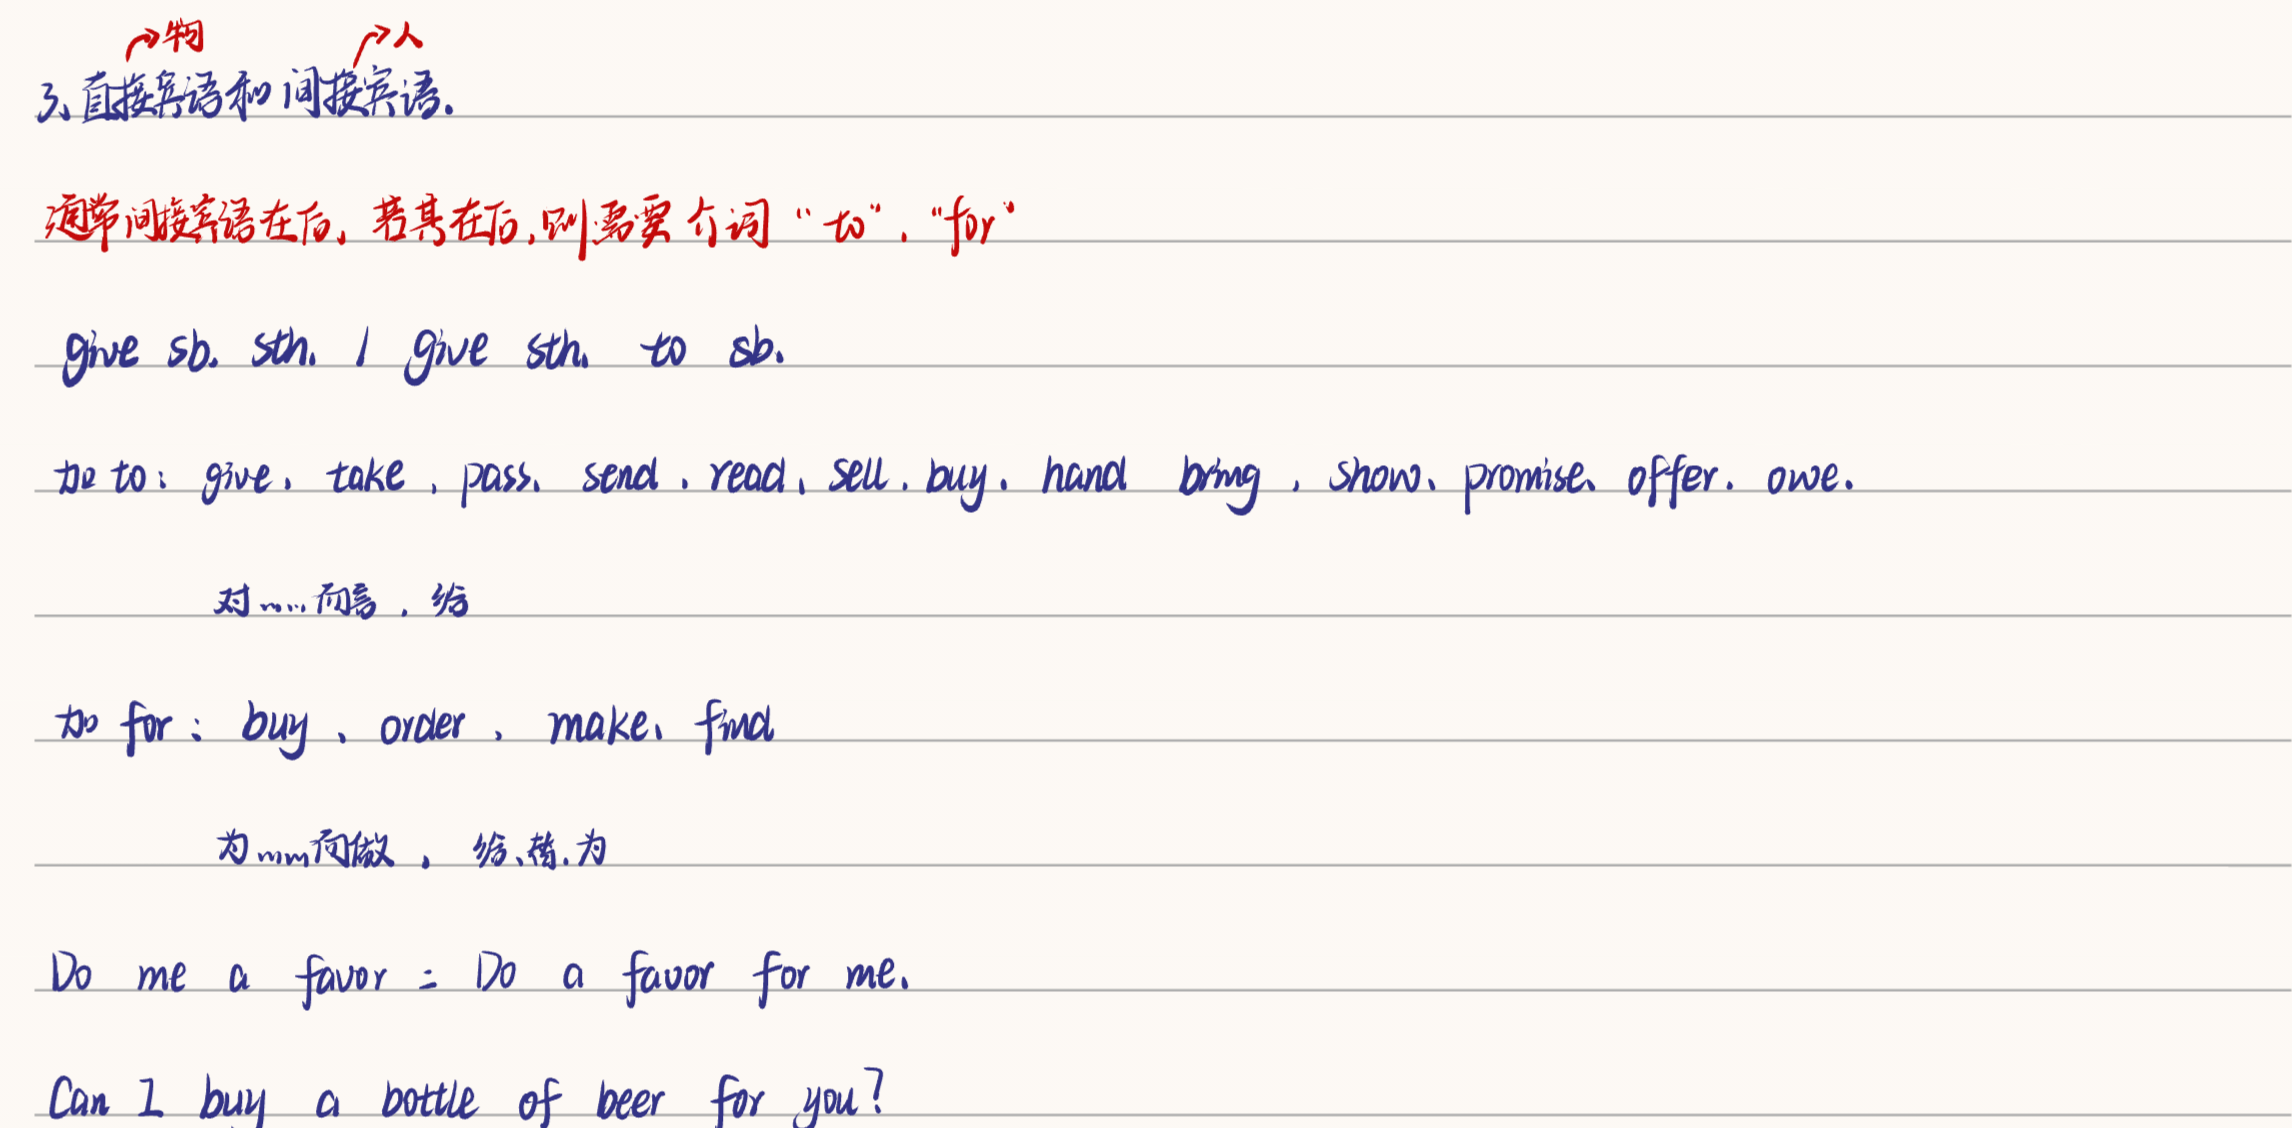 物 人
3、直接宾语和间接宾语.
通常间接宾语在后, 若其在后,则需要介词 “to”、“for”
give sb. sth. / give sth. to sb.
加 to: give、take、pass、send、read、sell、buy、hand bring、show、promise、offer、owe.
对……而言、给
加 for: buy、order、make、find
为……而做, 给、替、为
Do me a favor = Do a favor for me.
Can I buy a bottle of beer for you?